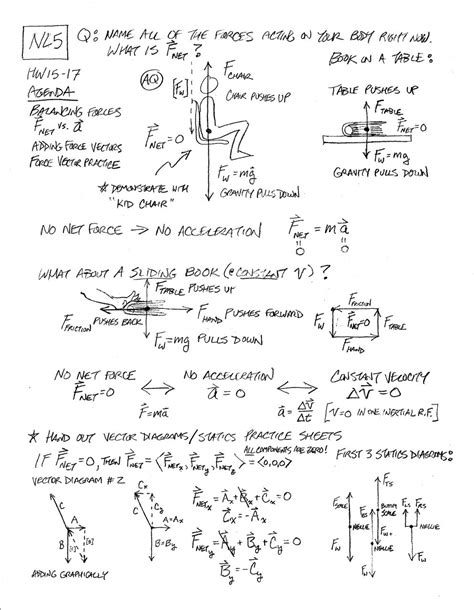 NL5
Q: NAME ALL OF THE FORCES ACTING ON YOUR BODY RIGHT NOW.
WHAT IS F_NET?
HW 15-17
AGENDA
BALANCING FORCES
F_NET VS. a
ADDING FORCE VECTORS
FORCE VECTOR PRACTICE
AQ
[F_W]
F_CHAIR
CHAIR PUSHES UP
F_NET = 0
F_W = mg
GRAVITY PULLS DOWN
* DEMONSTRATE WITH
"KID CHAIR"
BOOK ON A TABLE:
TABLE PUSHES UP
F_TABLE
F_NET = 0
F_W = mg
GRAVITY PULLS DOWN
NO NET FORCE → NO ACCELERATION
F_NET = ma
0 0
WHAT ABOUT A SLIDING BOOK (@ CONSTANT V)?
F_TABLE PUSHES UP
F_FRICTION PUSHES BACK
F_HAND PUSHES FORWARD
F_W = mg PULLS DOWN
F_FRICTION
F_W
F_NET = 0
F_TABLE
F_HAND
NO NET FORCE ↔ NO ACCELERATION ↔ CONSTANT VELOCITY
F_NET = 0 a = 0 ΔV = 0
F = ma a = ΔV/Δt [V=0 IN ONE INERTIAL R.F.]
* HAND OUT VECTOR DIAGRAMS/STATICS PRACTICE SHEETS
ALL COMPONENTS ARE ZERO!
IF F_NET = 0, THEN F_NET = <F_NETx, F_NETy, F_NETz> = <0,0,0>
VECTOR DIAGRAM #2
C
A
B
ADDING GRAPHICALLY
C_x
C_y
A = A_x
B = B_y
F_NETx = A_x + B_x + C_x = 0
C_x = -A_x
F_NETy = A_y + B_y + C_y = 0
B_y = -C_y
FIRST 3 STATICS DIAGRAMS:
F_TS
SCALE
NELLIE
F_W
SCALE
NELLIE
F_W
F_LS
F_RS
NELLIE
F_W